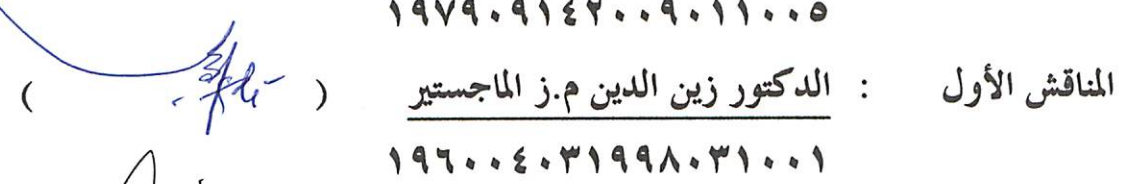 ١٩٧٩٠٩١٤٢٠٠٩٠١١٠٠٥
المناقش الأول : الدكتور زين الدين م.ز الماجستير ( )
١٩٦٠٠٤٠٣١٩٩٨٠٣١٠٠١